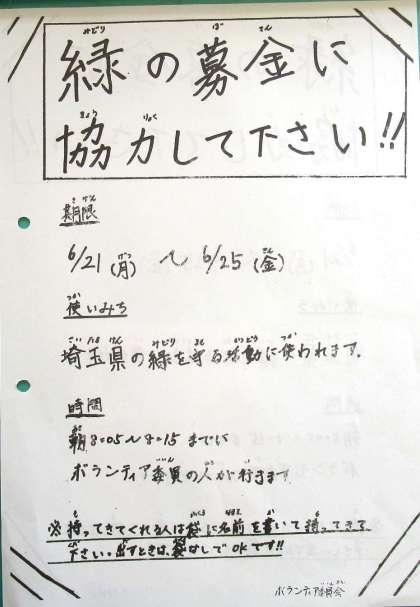 緑の募金に
協力して下さい!!
期限
6/21(月)〜6/25(金)
使いみち
埼玉県の緑を守る活動に使われます.
時間
朝8:05〜8:15までに
ボランティア委員の人が行きます
※持ってきてくれる人は袋に名前を書いて持ってきて
下さい。出すときは、袋なしでOKです!!
ボランティア委員会